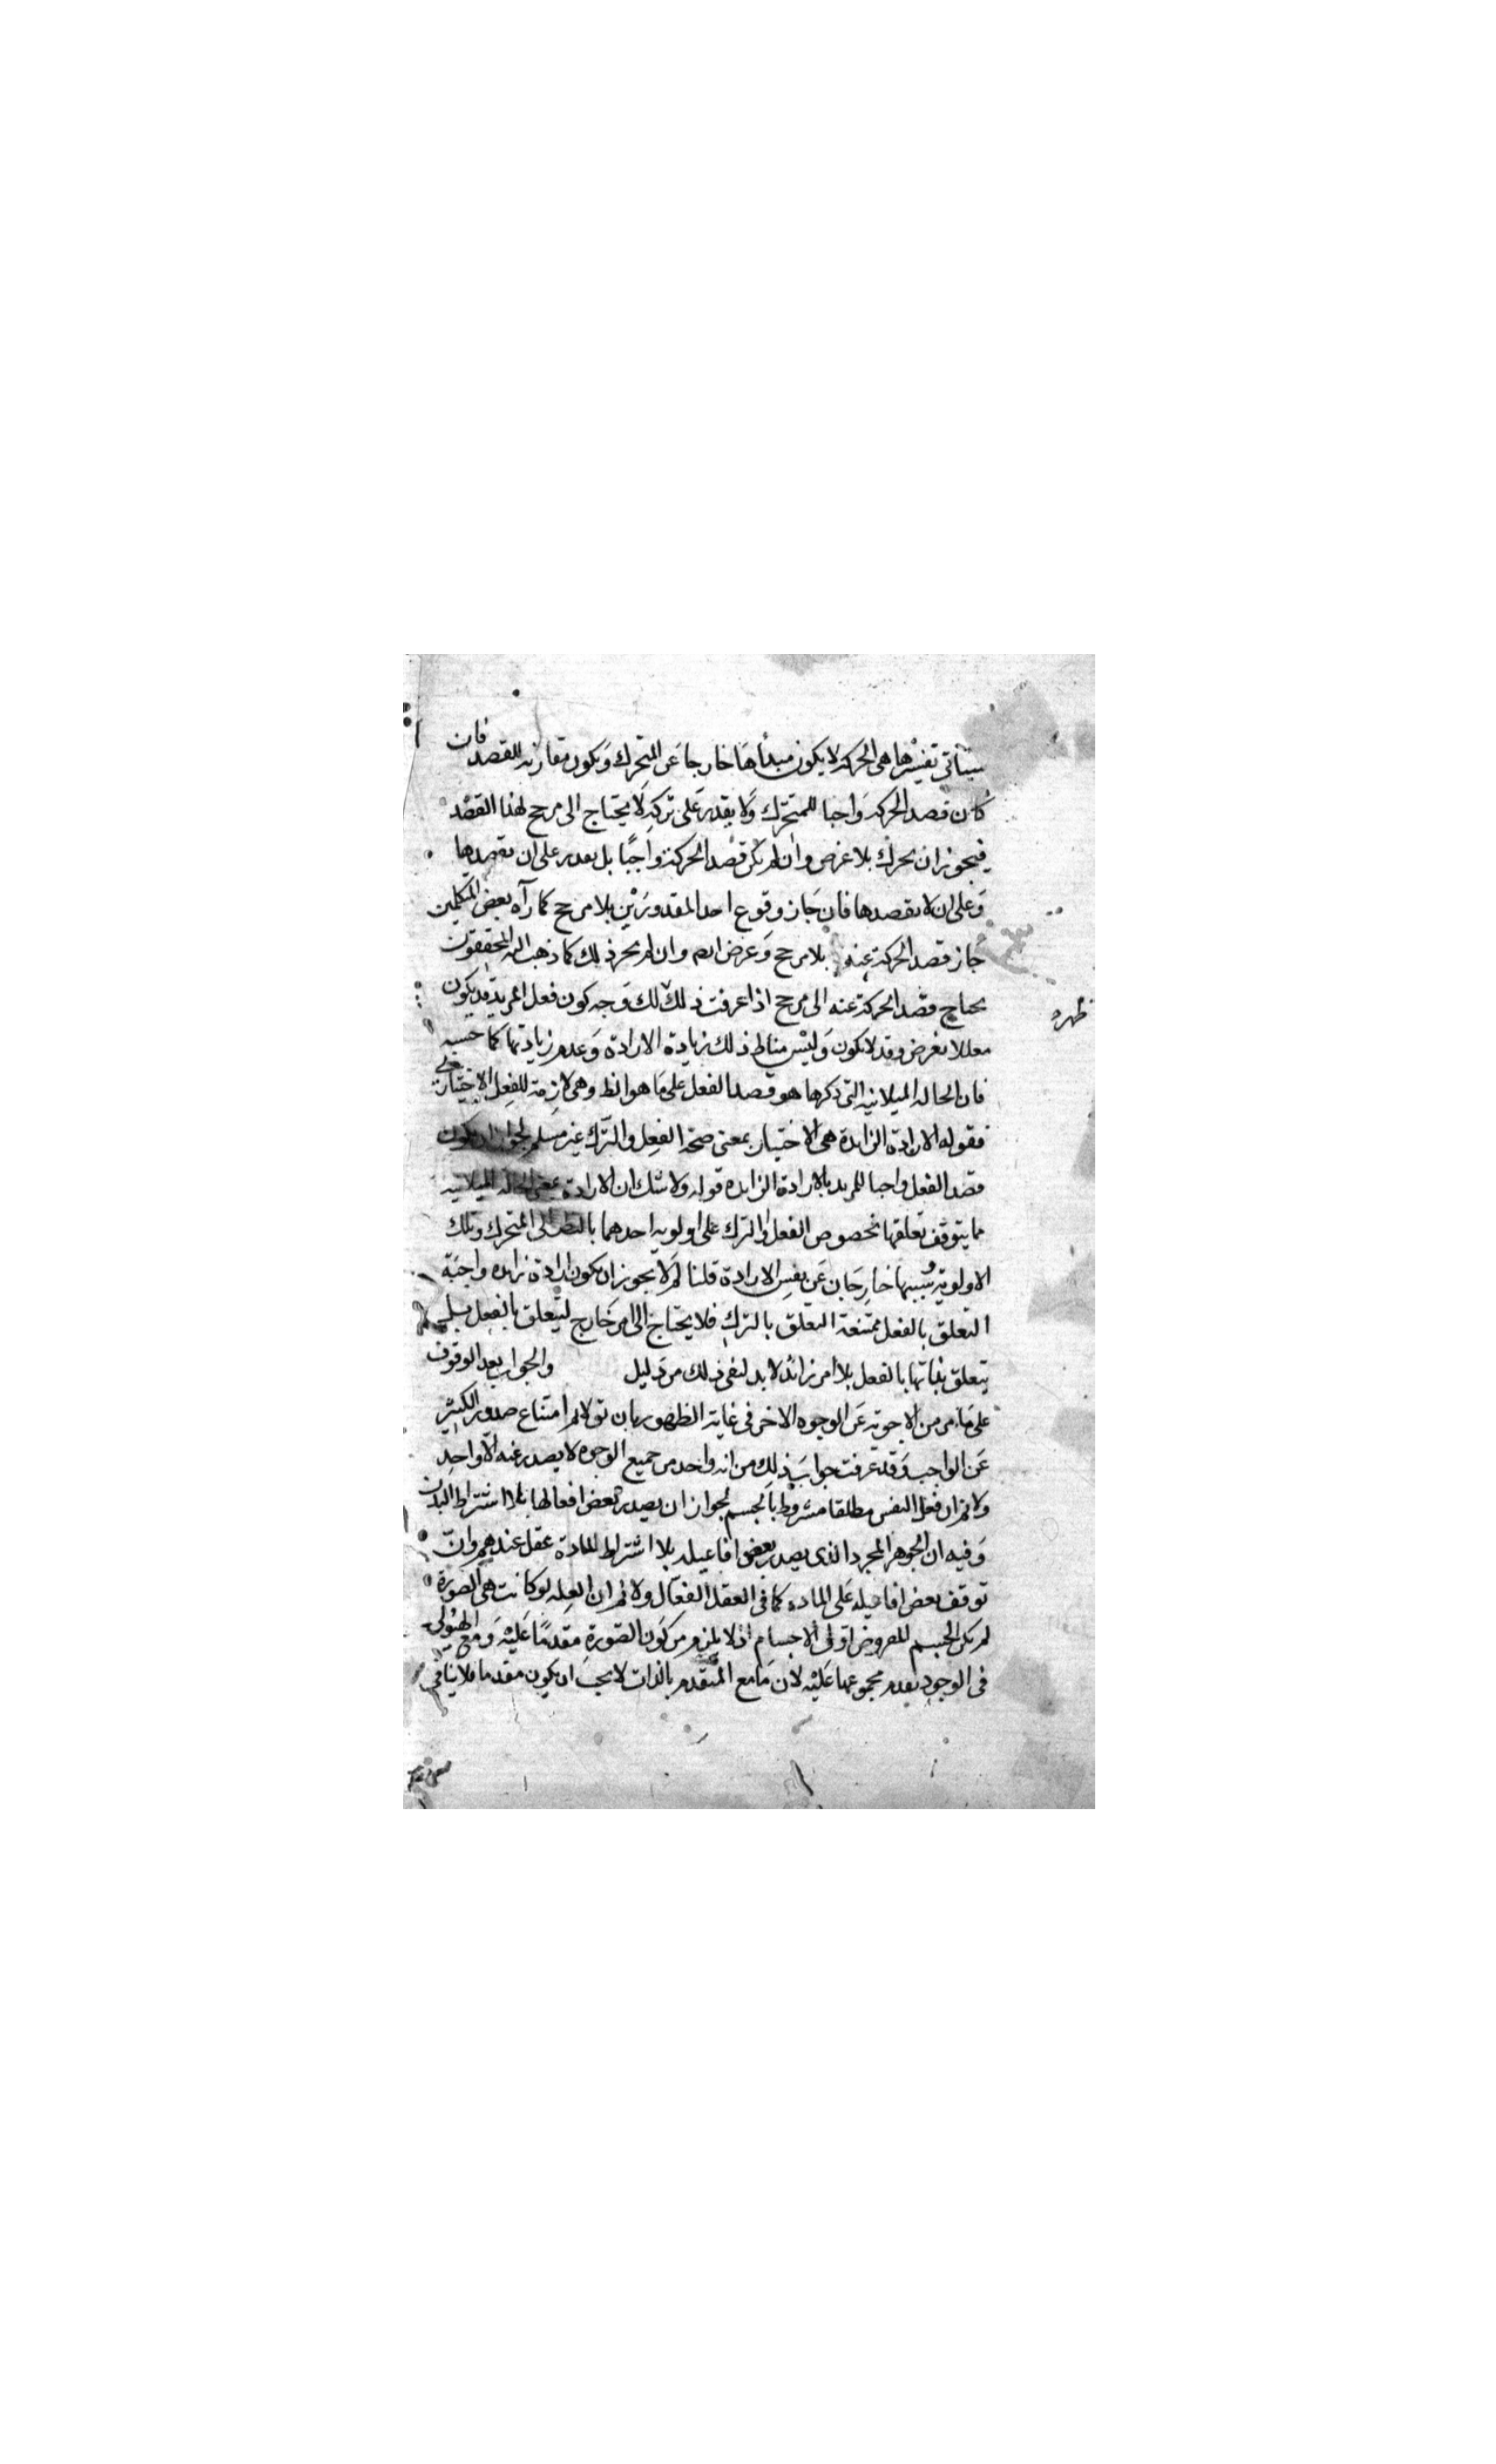 سيأتي تفسيرها هي الحركة لا يكون مبدأها خارجا عن المتحرك ويكون مقارنه للقصد فان
كان قصد الحركه واجبا للمتحرك ولا يقدر على تركه لا يحتاج الى مرجح لهذا القصد
فيجوز ان يحرك بلا غرض وان لم يكن قصد الحركة واجبًا بل يقدر على ان يقصدها
وعلى ان لا يقصدها فان جاز وقوع احد المقدورين بلا مرجح كما رآه بعض المتكلمين
جاز قصد الحركة عنه بلا مرجح وغرض وان لم يجز ذلك كما ذهب اليه المحققون
يحتاج قصد الحركة عنه الى مرجح اذا عرفت ذلك لك وجه كون فعل المريد قد يكون
ظهر
معللا بغرض وقد لا يكون وليس مناط ذلك زيادة الارادة وعدم زيادتها كما حسبه
فان الحاله الميلانيه التي ذكرها هو قصد الفعل على ما هو الظ وهي لازمة للفعل الاختياري
فقوله الارادة الزايدة هي الاختيار بمعنى صحة الفعل والترك غير مسلم لجواز ان يكون
قصد الفعل واجبا للمريد بالارادة الزايده قوله ولا شك ان الارادة بمعنى الحاله الميلانيه
مما يتوقف تعلقها بخصوص الفعل والترك على اولويه احدهما بالنظر الى المتحرك وتلك
الاولويه وسببها خارجان عن نفس الارادة قلنا لم لا يجوز ان يكون ارادة زايده واجبة
التعلق بالفعل ممتنعة التعلق بالترك فلا يحتاج الى امر خارج ليتعلق بالفعل بل
يتعلق بذاتها بالفعل بلا امر زائد لا بد لنفي ذلك من دليل والجواب بعد الوقوف
على ما مر من الاجوبه عن الوجوه الاخر في غاية الظهور بان تو لا نم امتناع صدور الكثير
عن الواجب وقد عرفت جواب ذلك من انه واحد من جميع الوجوه لا يصدر عنه الا واحد
ولا نم ان فعل النفس مطلقا مشروط بالجسم لجواز ان يصدر بعض افعالها بلا اشتراط البدن
وفيه ان الجوهر المجرد الذي يصدر بعض افاعيله بلا اشتراط المادة عقل عندهم وان
توقف بعض افاعيله على الماده كما في العقل الفعال ولا نم ان العله لو كانت هي الصورة
لم يكن الجسم المفروض اولى الاجسام اذ لا يلزم من كون الصورة مقدمًا عليه ومع الهيولى
في الوجود تقدم مجموعهما عليه لان ما مع المتقدم بالذات لا يجب ان يكون مقدما فلا ينافي